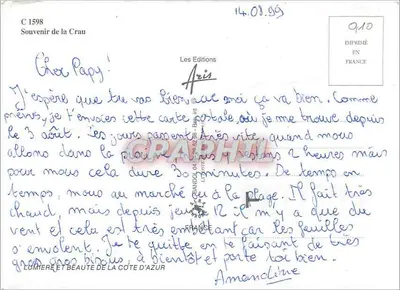 C 1598
Souvenir de la Crau
14.08.99
0,10
IMPRIMÉ
EN
FRANCE
Les Editions
Aris
Cher Papy!
J'espère que tu vas bien, moi ça va bien. Comme
prévu, je t'envoies cette carte postale où je me trouve depuis
le 3 août. Les jours passent très vite, quand nous
allons dans la nous restons 2 heures mais
pour nous cela dure 30 minutes. De temps en
temps, nous au marché ou à la plage. Il fait très
chaud, mais depuis jeudi 12 il m'y a que du
vent et cela est très embêtant car les feuilles
s'envolent. Je te quitte en te faisant de très
gros gros bisous, à bientôt et porte toi bien.
Amandine
FRANCE
LUMIERE ET BEAUTE DE LA COTE D'AZUR